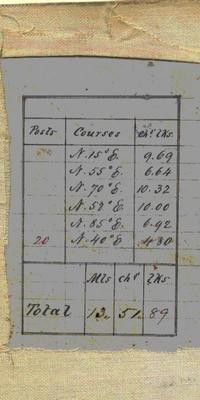 Posts Courses Chs. lks
N. 15° E. 9.69
N. 55° E. 6.64
N. 70° E. 10.32
N. 52° E. 10.00
N. 85° E. 6.92
20 N. 40° E. 4.30
Mls chs lks
Total 13. 51. 89